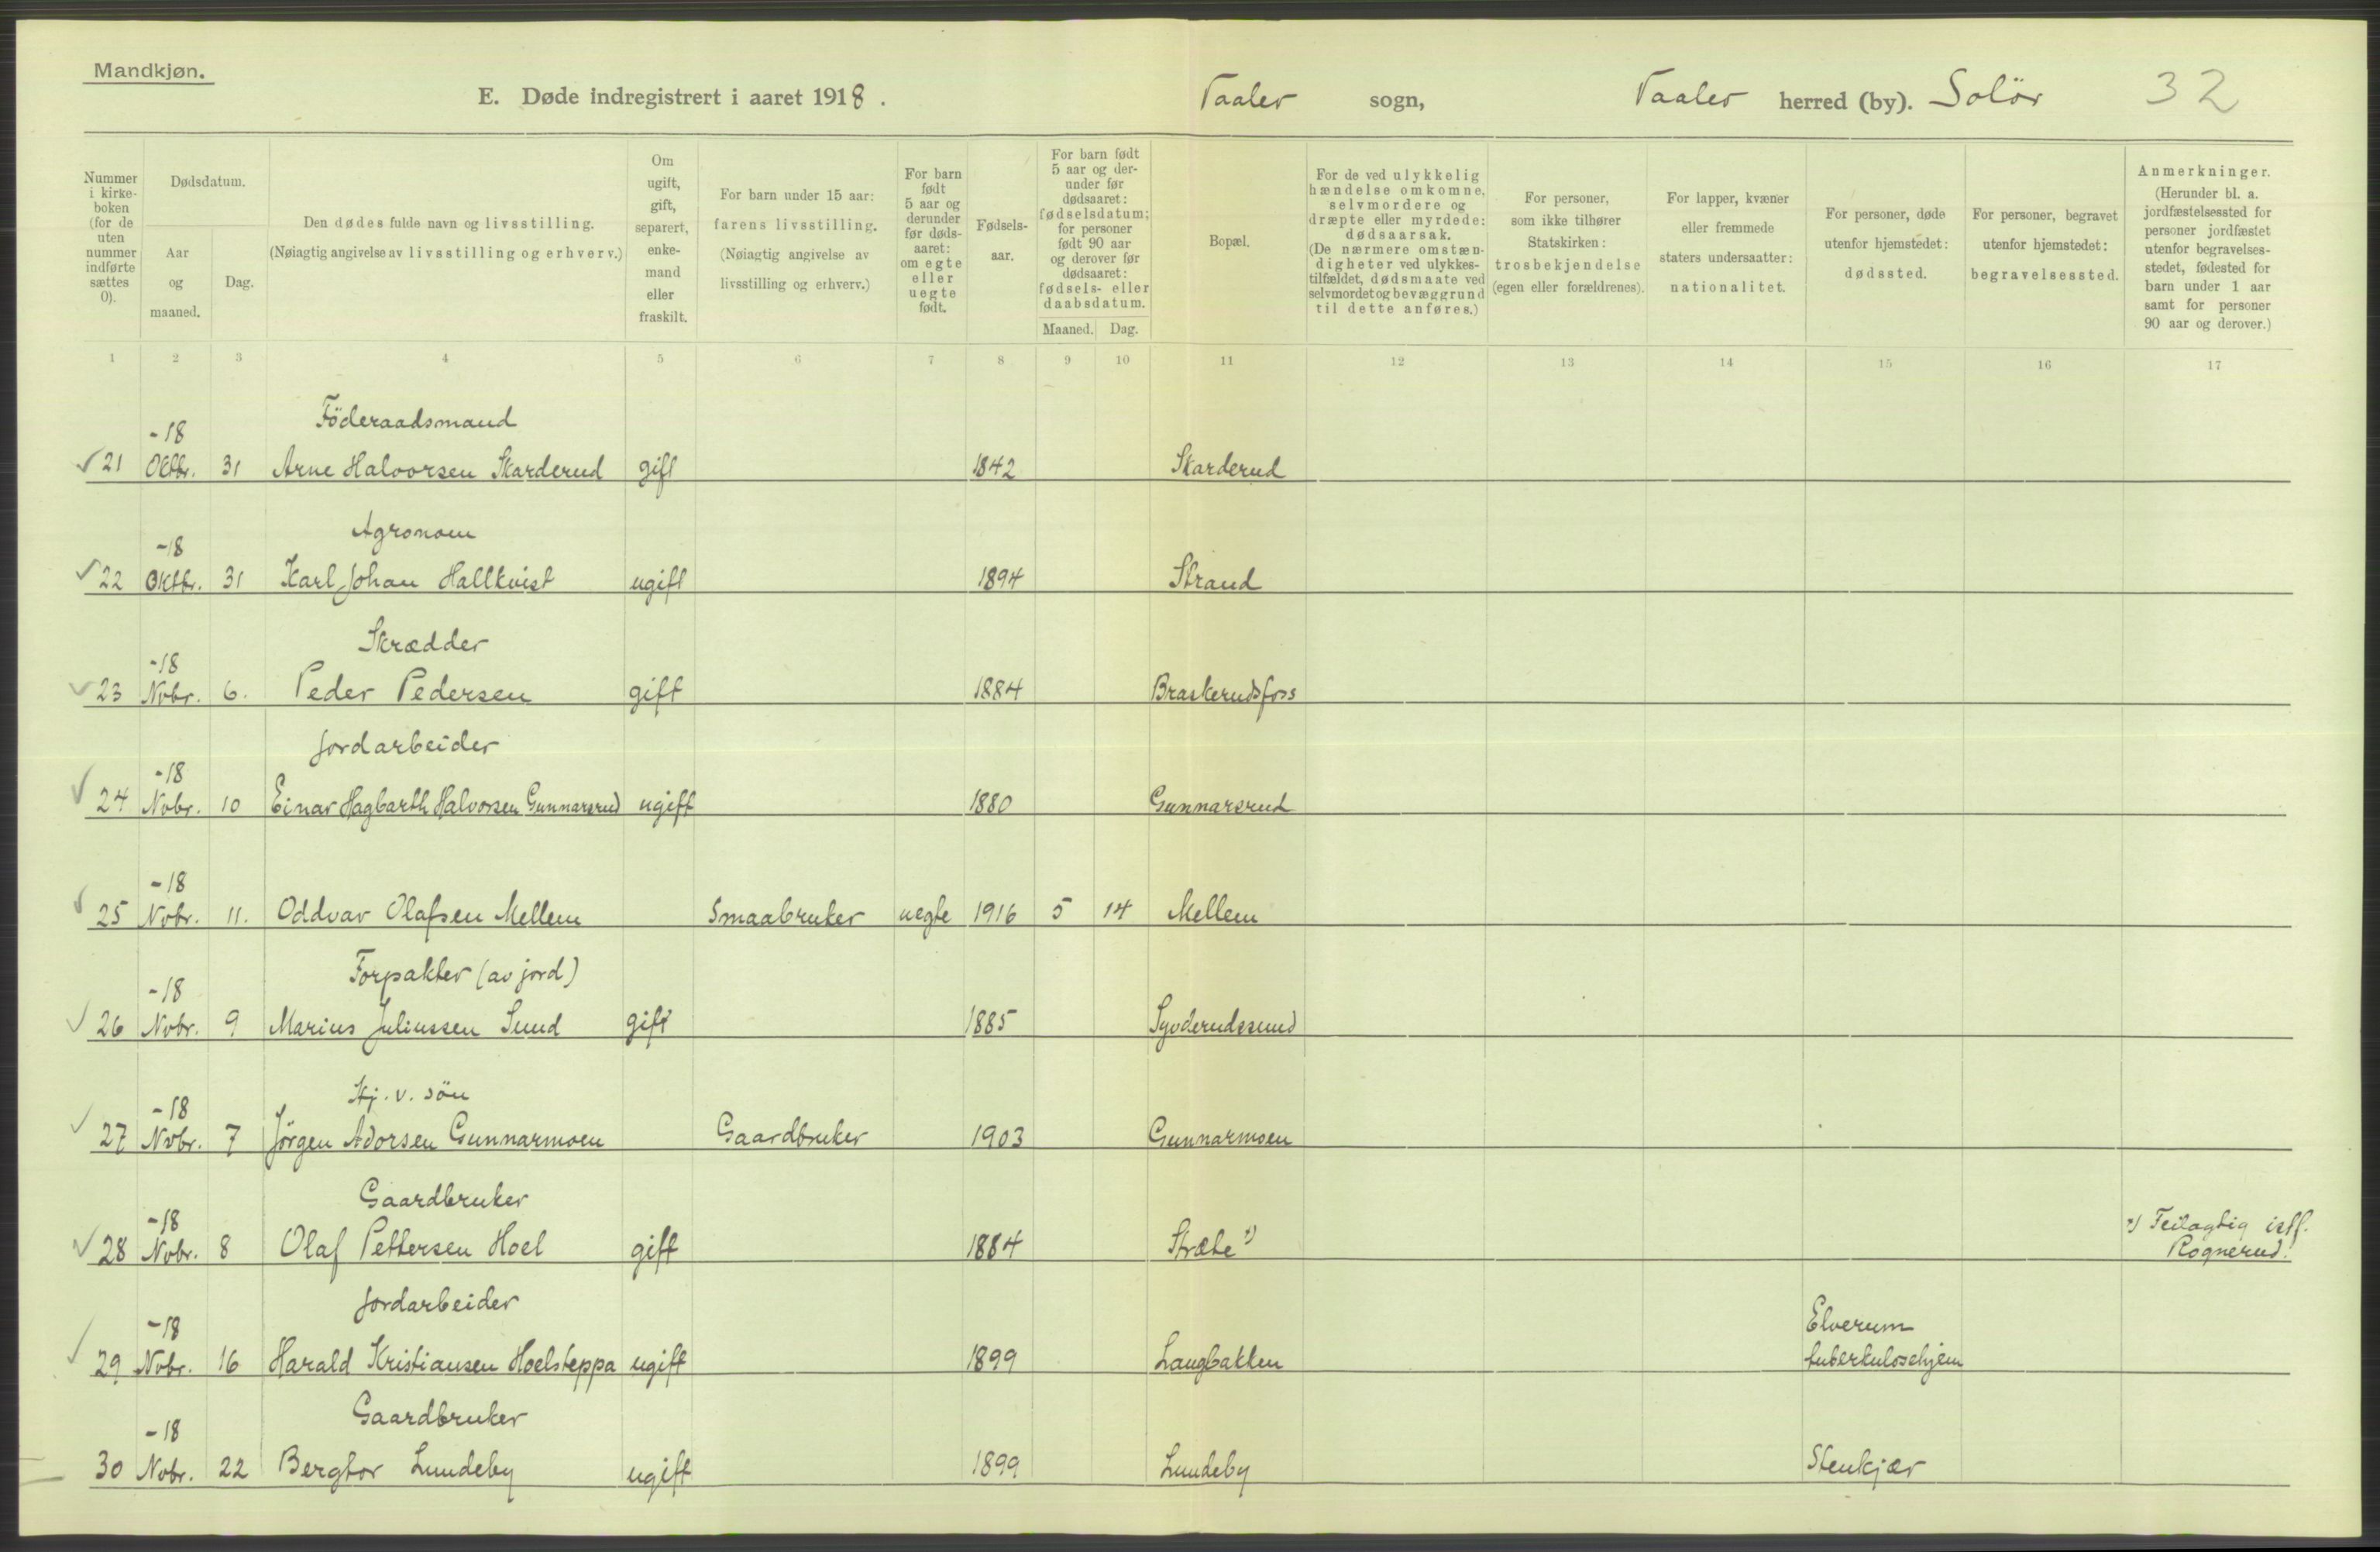 Mandkjøn.
E. Døde indregistrert i aaret 1918.
Vaaler sogn, Vaaler herred (by). Solör 32
Nummer i kirke-boken (for de uten nummer indførte sættes 0).
Dødsdatum.
Aar og maaned.
Dag.
Den dødes fulde navn og livsstilling.
(Nøiagtig angivelse av livsstilling og erhverv.)
Om ugift, gift, separert, enke-mand eller fraskilt.
For barn under 15 aar: farens livsstilling.
(Nøiagtig angivelse av livsstilling og erhverv.)
For barn født 5 aar og derunder før døds-aaret: om egte eller uegte født.
Fødsels-aar.
For barn født 5 aar og der-under før dødsaaret: fødselsdatum; for personer født 90 aar og derover før dødsaaret: fødsels- eller daabsdatum.
Maaned. Dag.
Bopæl.
For de ved ulykkelig hændelse omkomne, selvmordere og dræpte eller myrdede: dødsaarsak.
(De nærmere omstæn-digheter ved ulykkes-tilfældet, dødsmaate ved selvmordet og bevæggrund til dette anføres.)
For personer, som ikke tilhører Statskirken: trosbekjendelse (egen eller forældrenes).
For lapper, kvæner eller fremmede staters undersaatter: nationalitet.
For personer, døde utenfor hjemstedet: dødssted.
For personer, begravet utenfor hjemstedet: begravelsessted.
Anmerkninger.
(Herunder bl. a. jordfæstelsessted for personer jordfæstet utenfor begravelses-stedet, fødested for barn under 1 aar samt for personer 90 aar og derover.)
1 2 3 4 5 6 7 8 9 10 11 12 13 14 15 16 17
-18 Föderaadsmand
21 Oktbr. 31 Arne Halvorsen Skarderud gift 1842 Skarderud
-18 Agronom
22 Oktbr. 31 Karl Johan Hallkvist ugift 1894 Strand
-18 Skrædder
23 Nvbr. 6. Peder Pedersen gift 1884 Braskerudsfoss
-18 Jordarbeider
24 Nvbr. 10 Einar Hagbarth Halvorsen Gunnarsrud ugift 1880 Gunnarsrud
-18
25 Nvbr. 11. Oddvar Olafsen Mellem Smaabruker uegte 1916 5 14 Mellem
-18 Forpakter (av jord)
26 Nvbr. 9 Marius Juliussen Sund gift 1885 Syvderudssund
-18 Hj. v. sön
27 Nvbr. 7 Jörgen Adorsen Gunnarmoen Gaardbruker 1903 Gunnarmoen
-18 Gaardbruker
28 Nvbr. 8 Olaf Pettersen Hoel gift 1884 Stræte ¹) ¹) Feilagtig istf.
Rognerud!
-18 Jordarbeider Elverum
29 Nvbr. 16 Harald Kristiansen Hoelsteppa ugift 1899 Langbakken tuberkulosehjem
-18 Gaardbruker
30 Nvbr. 22 Bergtor Lundeby ugift 1899 Lundeby Stenkjær